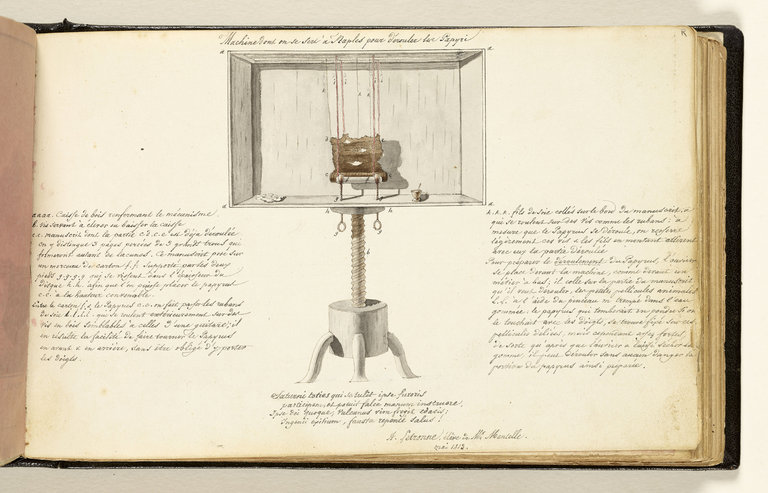 Machine dont on se sert à Naples pour dérouler les Papyri
a a
a a
a.a.a.a. Caisse de bois renfermant le mécanisme.
b. vis servant à élever ou baisser la caisse
c.c. manuscrit dont la partie c.d.c.e. est déja déroulée.
On y distingue 3 pages percées de 3 grands trous qui
forment autant de lacunes. Ce manuscrit pose sur
un morceau de carton f.f. Supporté par les deux
pieds g.g.g.g. qui se vissent dans l'épaisseur du
disque h.h. afin que l'on puisse placer le papyrus
c.c. à la hauteur convenable.
Entre le carton f.f. & le Papyrus c.c. on fait passer les rubans
de soie i.i.i.i. qui se roulent extérieurement sur des
vis en bois semblables à celles d'une guitare; il
en résulte la facilité de faire tourner le Papyrus
en avant & en arrière, sans être obligé d'y porter
les doigts.
k.k.k. fils de soie collés sur le bord du manuscrit, &
qui se roulent sur des vis comme les rubans: à
mesure que le Papyrus se déroule, on resserre
légèrement ces vis & les fils en montant attirent
avec eux la partie déroulée
Pour préparer le déroulement du Papyrus, l'ouvrier
se place devant la machine, comme devant un
métier à bas; il colle sur la partie du manuscrit
qu'il veut dérouler, des petites pellicules animales
l.l. à l'aide du pinceau m trempé dans l'eau
gommée. le papyrus qui tomberait en poudre si on
le touchait avec les doigts, se trouve fixé sur ces
pellicules délicates, mais cependant assez fortes,
de sorte qu'après que l'ouvrier a laissé sécher la
gomme, il peut dérouler sans aucun danger la
portion du papyrus ainsi préparée.
participem, et potuit falce manum instruere,
Ipse dii quoque, Vulcanus vim fregit edacis;
H. Letronne, élève de Mr. Mentelle.
mai 1813.